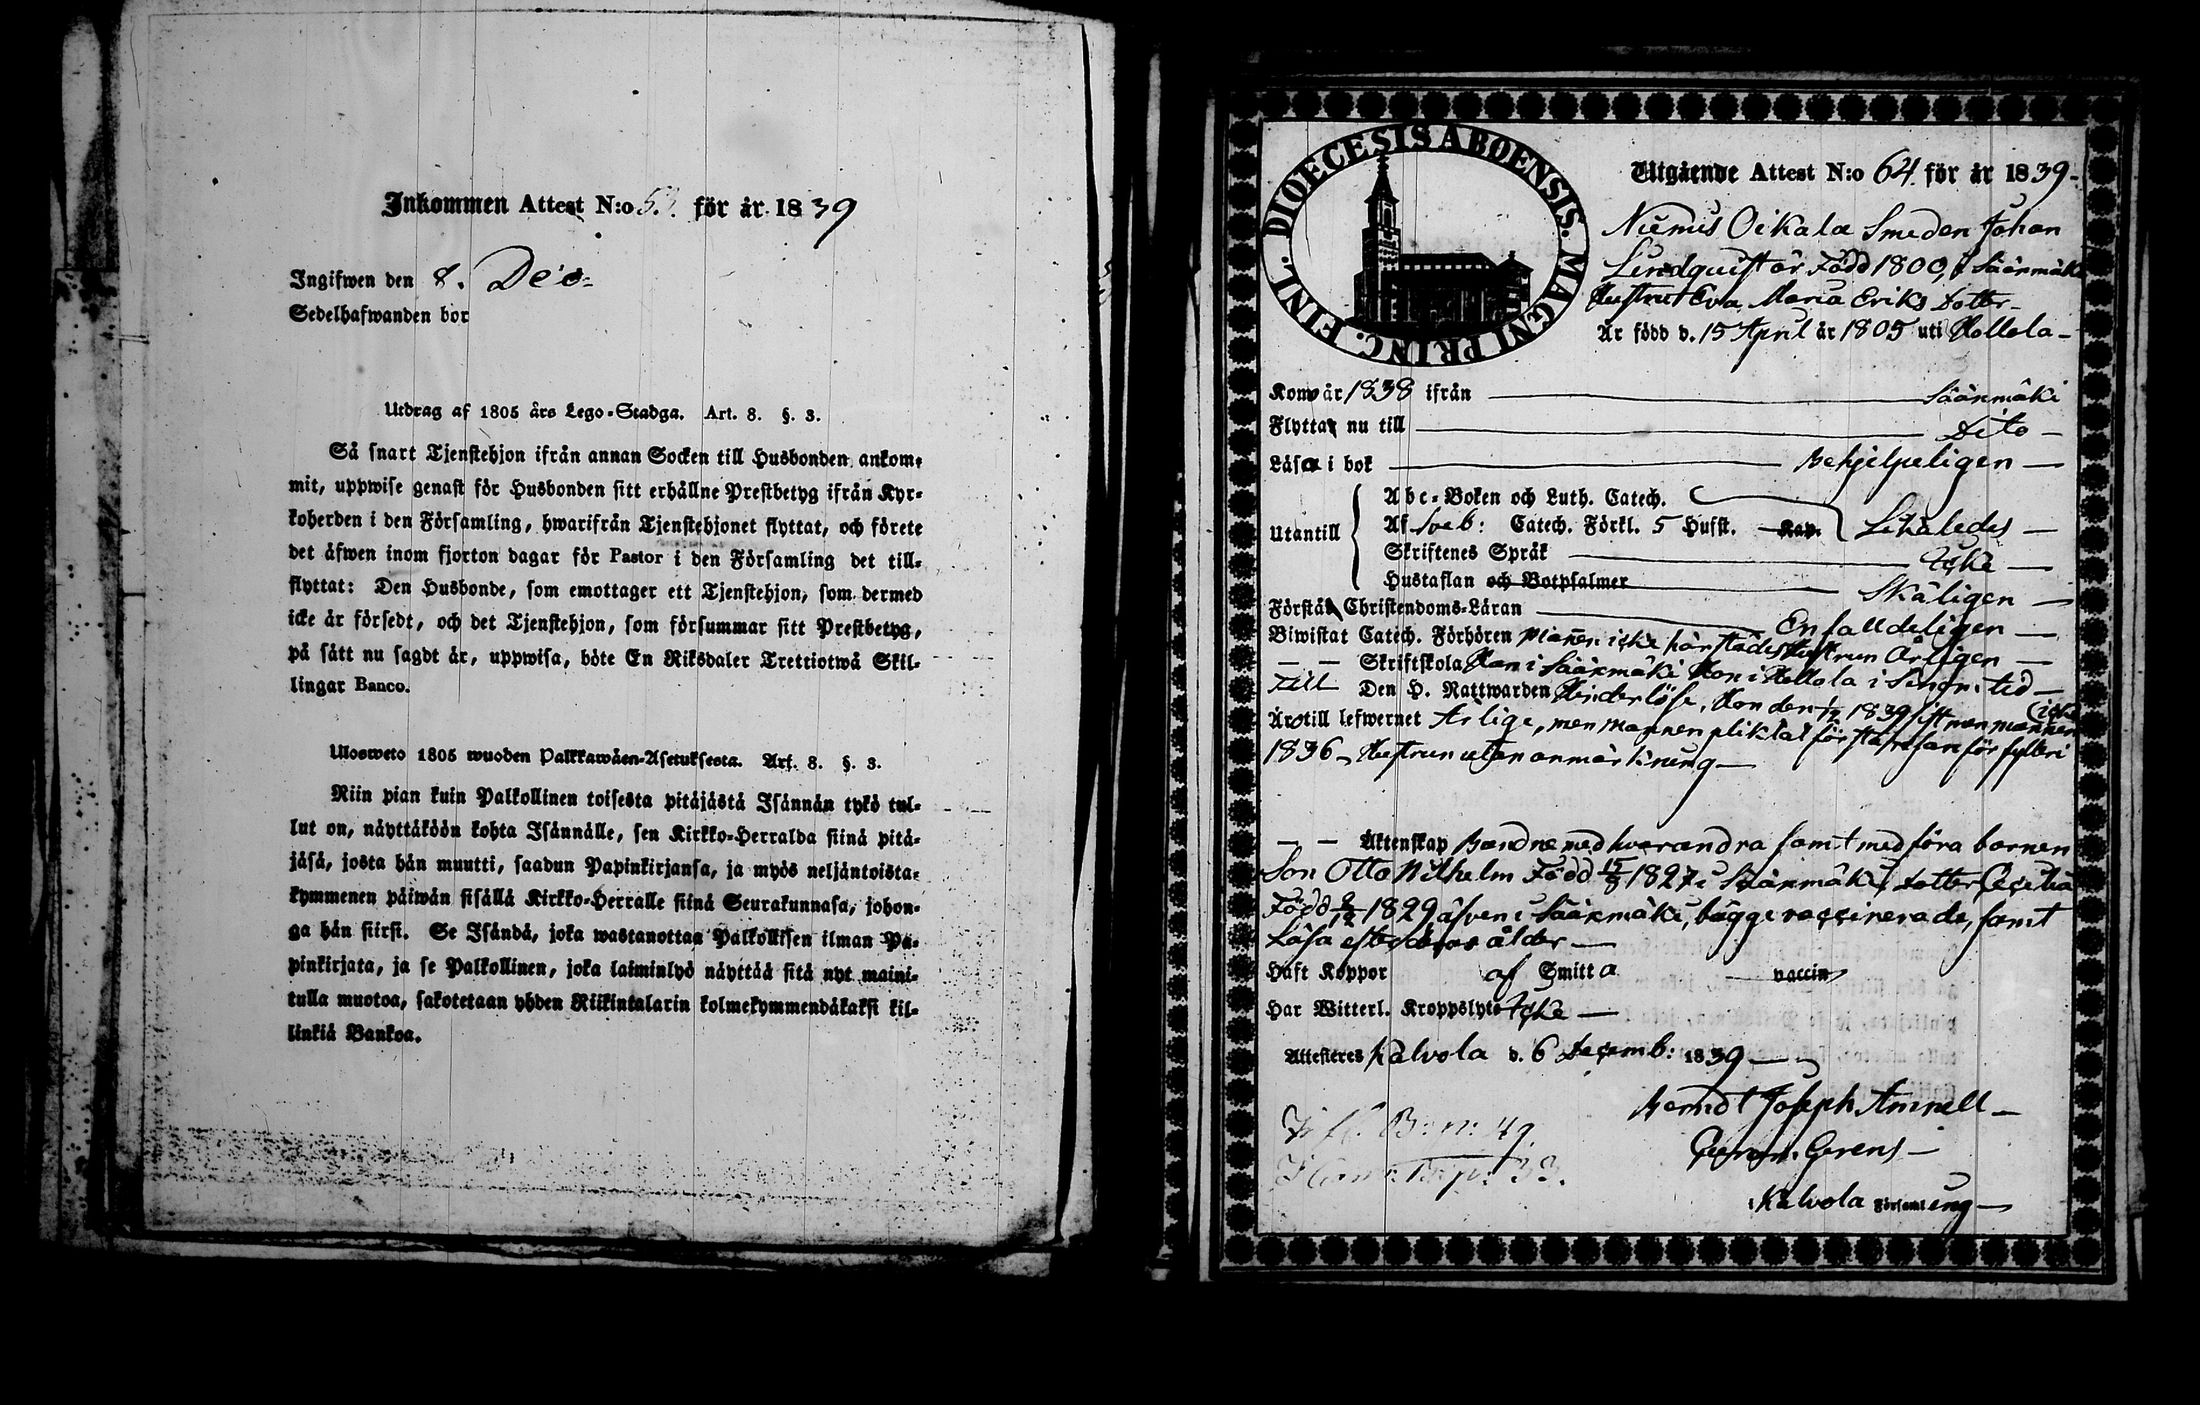 Inkommen Attest N:o 53. för år 1839
Ingifwen den 8. Dec:
Sedelhafwanden bor
Utdrag af 1805 års Lego-Stadga. Art. 8. §. 3.
Så snart Tjenstehjon ifrån annan Socken till Husbonden ankom-
mit, uppwise genast för Husbonden sitt erhållne Prestbetyg ifrån Kyr-
koherden i den Församling, hwarifrån Tjenstehjonet flyttat, och förete
det äfwen inom fjorton dagar för Pastor i den Församling det till-
flyttat: Den Husbonde, som emottager ett Tjenstehjon, som dermed
icke är försedt, och det Tjenstehjon, som försummar sitt Prestbetyg,
på sätt nu sagdt är, uppwisa, böte En Riksdaler Trettiotwå Skil-
lingar Banco.
Ulosweto 1805 wuoden Palkkawäen-Asetuksesta. Art. 8. §. 3.
Niin pian kuin Palkollinen toisesta pitäjästä Isännän tykö tul-
lut on, näyttäköön kohta Isännälle, sen Kirkko-Herralda siinä pitä-
jäsä, josta hän muutti, saadun Papinkirjansa, ja myös neljäntoista-
kymmenen päiwän sisällä Kirkko-Herralle siinä Seurakunnasa, johon-
ga hän siirsi. Se Isändä, joka wastanottaa Palkollisen ilman Pa-
pinkirjata, ja se Palkollinen, joka laiminlyö näyttää sitä nyt maini-
tulla muotoa, sakotetaan yhden Riikintalarin kolmekymmendäkaksi kil-
linkiä Bankoa.
DIOECESIS ABOENSIS. MAGNI PRINC. FINL.
Utgående Attest N:o 64. för år 1839-
Niemis Oikala Smeden Johan
Lindquist är Född 1800, i Sääxmäki
Hustrun Eva Maria Eriks Dotter-
Är född d. 15 April år 1805 uti Hollola-
Kom år 1838 ifrån Sääxmäki
Flyttar nu till Dito -
Läsa i bok Behjelpeligen -
Utantill
Abc-Boken och Luth. Catech.
Af Sveb: Catech. Förkl. 5 Hufst. Kap. Likaledes -
Skriftenes Språk Icke -
Hustaflan och Botpsalmer Skäligen -
Förstå Christendoms-Läran Enfalldeligen -
Biwistat Catech. Förhören Mannen icke härstädes Hustrun Årligen -
- - Skriftskola Han i Sääxmäki Hon i Hollola i sinom tid -
Till Den H. Nattwarden Hinderlöse, Hon den 1839 sist men mannen (icke
Äro till lefwernet Ärlige, men Mannen pliktat för för fylleri
1836 - Hustrun utan anmärkning -
- - Äktenskap Bandne med hvarandra samt medföra barnen
Son Otto Wilhelm Född 15/8 1827 i Sääxmäki, Dotter Cecilia
Född 1829 äfven i Sääxmäki, bägge vaccinerade, samt
Läsa efter deras ålder -
Haft Koppor af Smitta vaccin
Har Witterl. Kroppslyte Icke -
Attesteres Kalvola d. 6 Decemb: 1839 -
Berndt Joseph Aminell -
i Kalvola Församling -